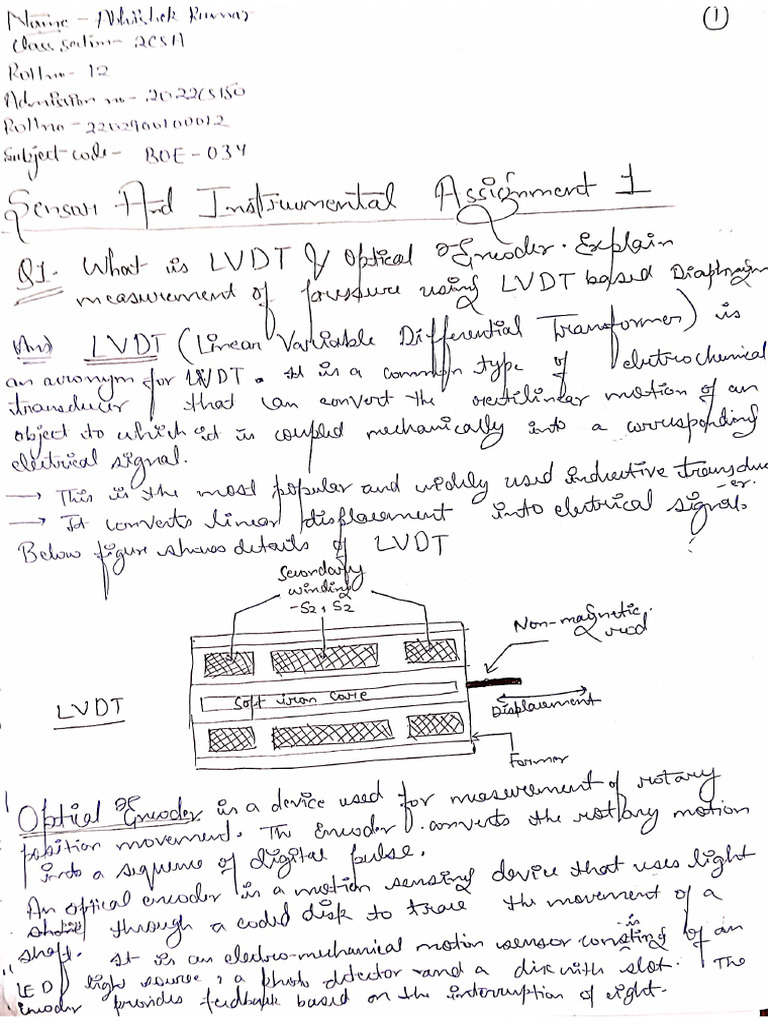 (1)
Name - Abhishek Kumar
Class section - 2CSA
Roll no - 12
Admission no - 2022CS150
Roll no - 2202900100012
Subject code - BOE - 034
Sensor And Instrumental Assignment 1
Q1. What is LVDT & Optical Encoder. Explain
measurement of pressure using LVDT based Diaphragm
Ans LVDT (Linear Variable Differential Transformer) is
an acronym for LVDT. It is a common type of electrochemical
transducer that can convert the rectilinear motion of an
object to which it is coupled mechanically into a corresponding
electrical signal.
→ This is the most popular and widely used inductive transducer.
→ It converts linear displacement into electrical signal.
Below figure shows details of LVDT
Secondary
winding
- S2, S2
Non-magnetic
rod
Soft iron core
LVDT
Displacement
Former
Optical Encoder is a device used for measurement of rotary
position movement. The Encoder converts the rotary motion
into a sequence of digital pulse.
An optical encoder is a motion sensing device that uses light
through a coded disk to trace the movement of a
shaft. It is an electro-mechanical motion sensor consisting of an
"LED" light source, a photo detector and a disk with slot. The
encoder provides feedback based on the interruption of light.